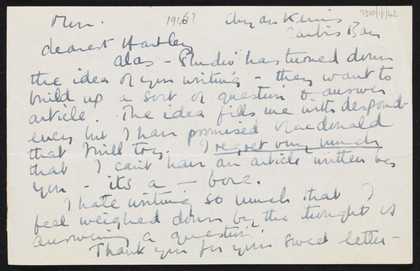 Mon. 1946? Chy an Kerris
Carbis Bay
dearest Hartley
Alas - Studio has turned down
the idea of your writing - they want to
build up a sort of question & answer
article. The idea fills me with despond-
ency but I have promised Macdonald
that I will try. I regret very much
that I can't have an article written by
you - it's a — bore.
I hate writing so much that I
feel weighed down by the thought of
answering a question!
Thank you for your sweet letter -